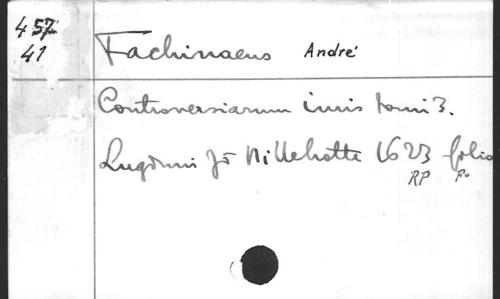 457
41
Fachinaeus André
Controversiarum iuris tomi 3.
Lugduni Jō Pillehotte 1623 folio
RP Fo